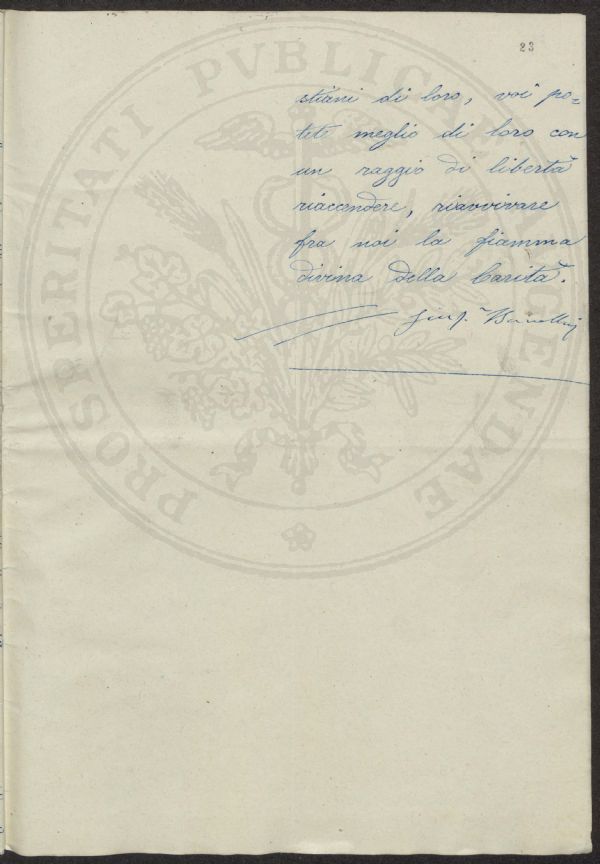 23
stiani di loro, voi po=
tete meglio di loro con
un raggio di libertà
riaccendere, riavvivare
fra noi la fiamma
divina della Carità.
PROSPERITATI PVBLICAE AVGENDAE